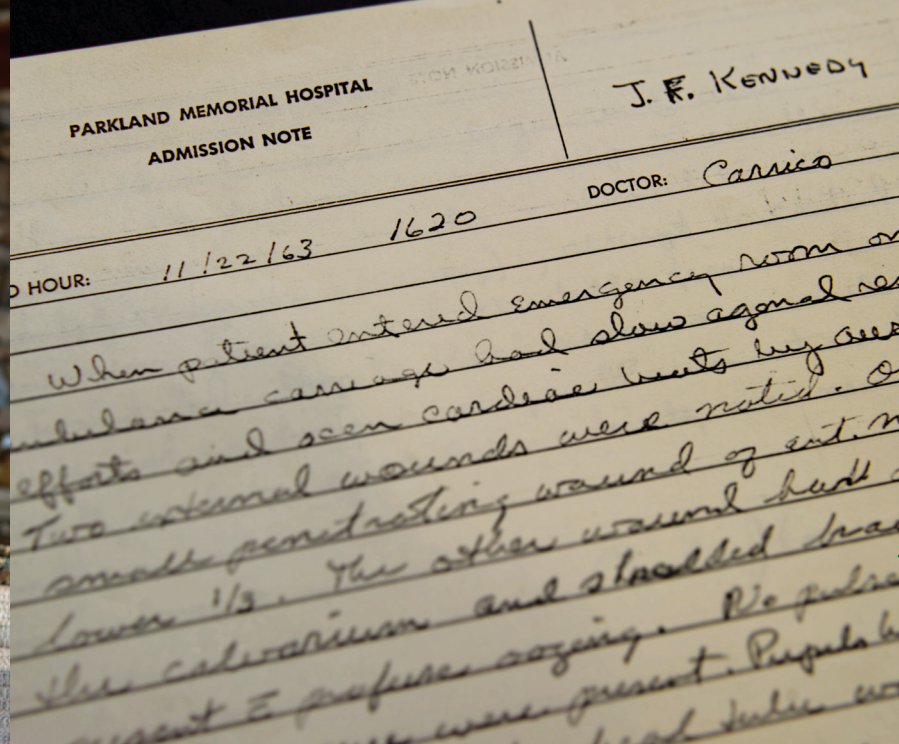 PARKLAND MEMORIAL HOSPITAL
ADMISSION NOTE
J. F. KENNEDY
DOCTOR: Carrico
HOUR: 11/22/63 1620
When patient entered emergency room on
carriage had slow agonal res
efforts and scan cardiac beats by aus
Two external wounds were noted. O
small penetrating wound of ant. n
lower 1/3. The other wound had
the calvarium and shredded brai
present c profuse oozing. No pulse
were present. Pupils